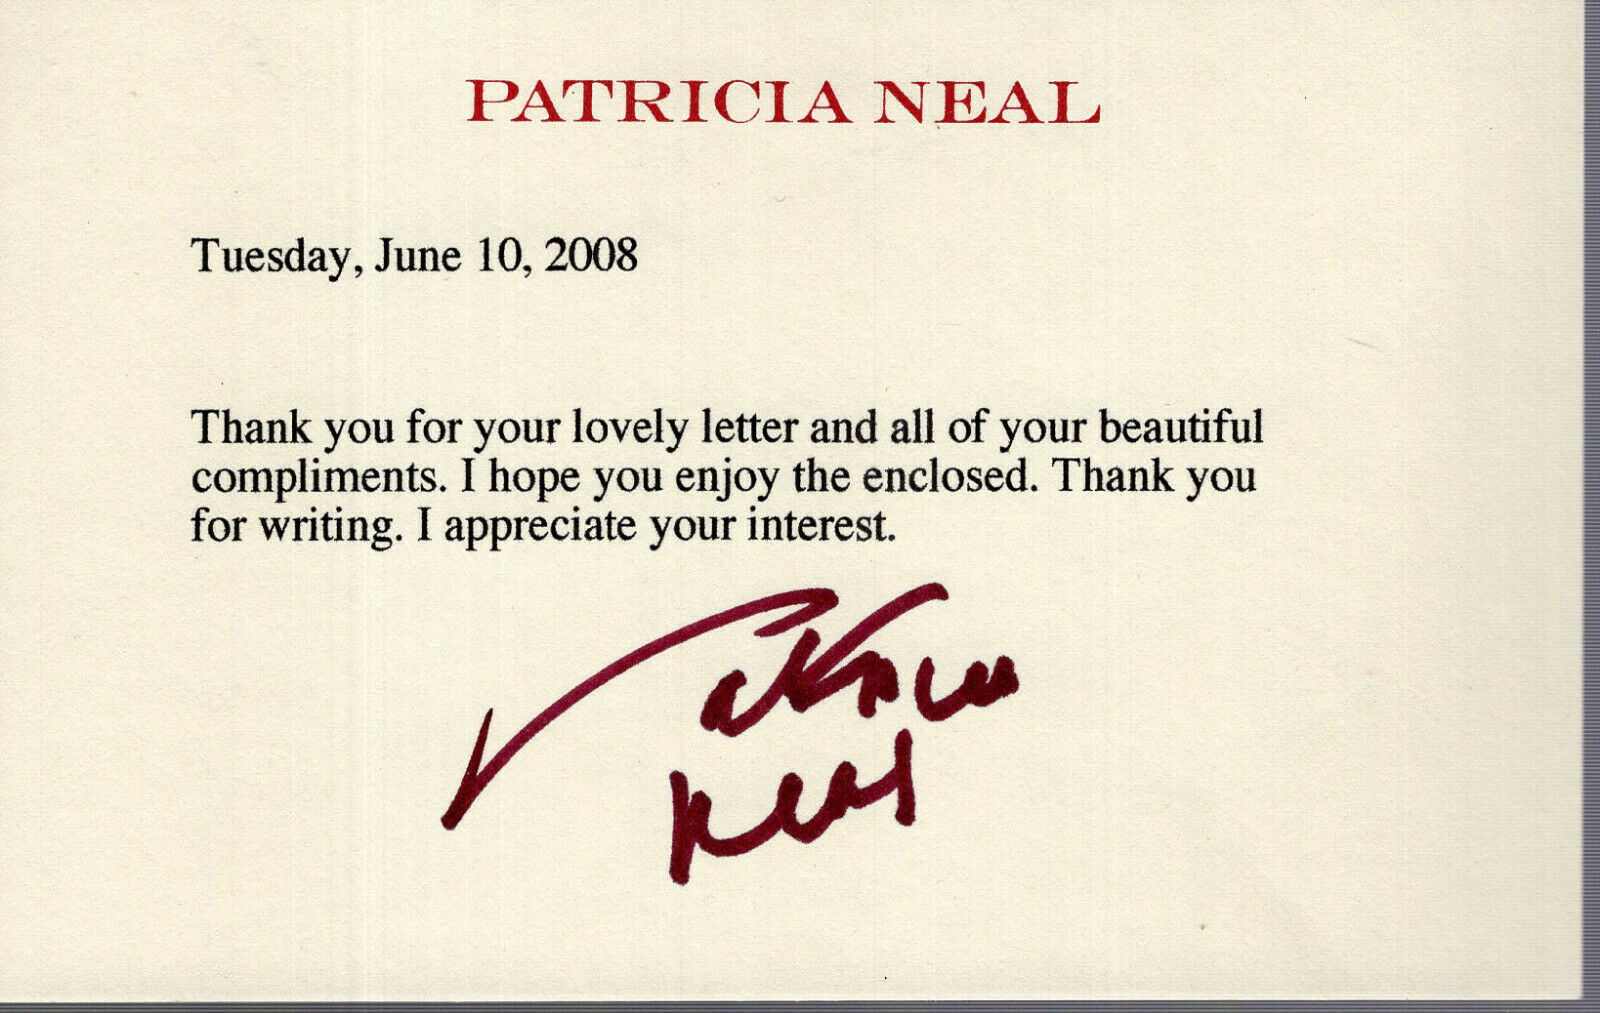 PATRICIA NEAL
Tuesday, June 10, 2008
Thank you for your lovely letter and all of your beautiful
compliments. I hope you enjoy the enclosed. Thank you
for writing. I appreciate your interest.
Patricia
Neal